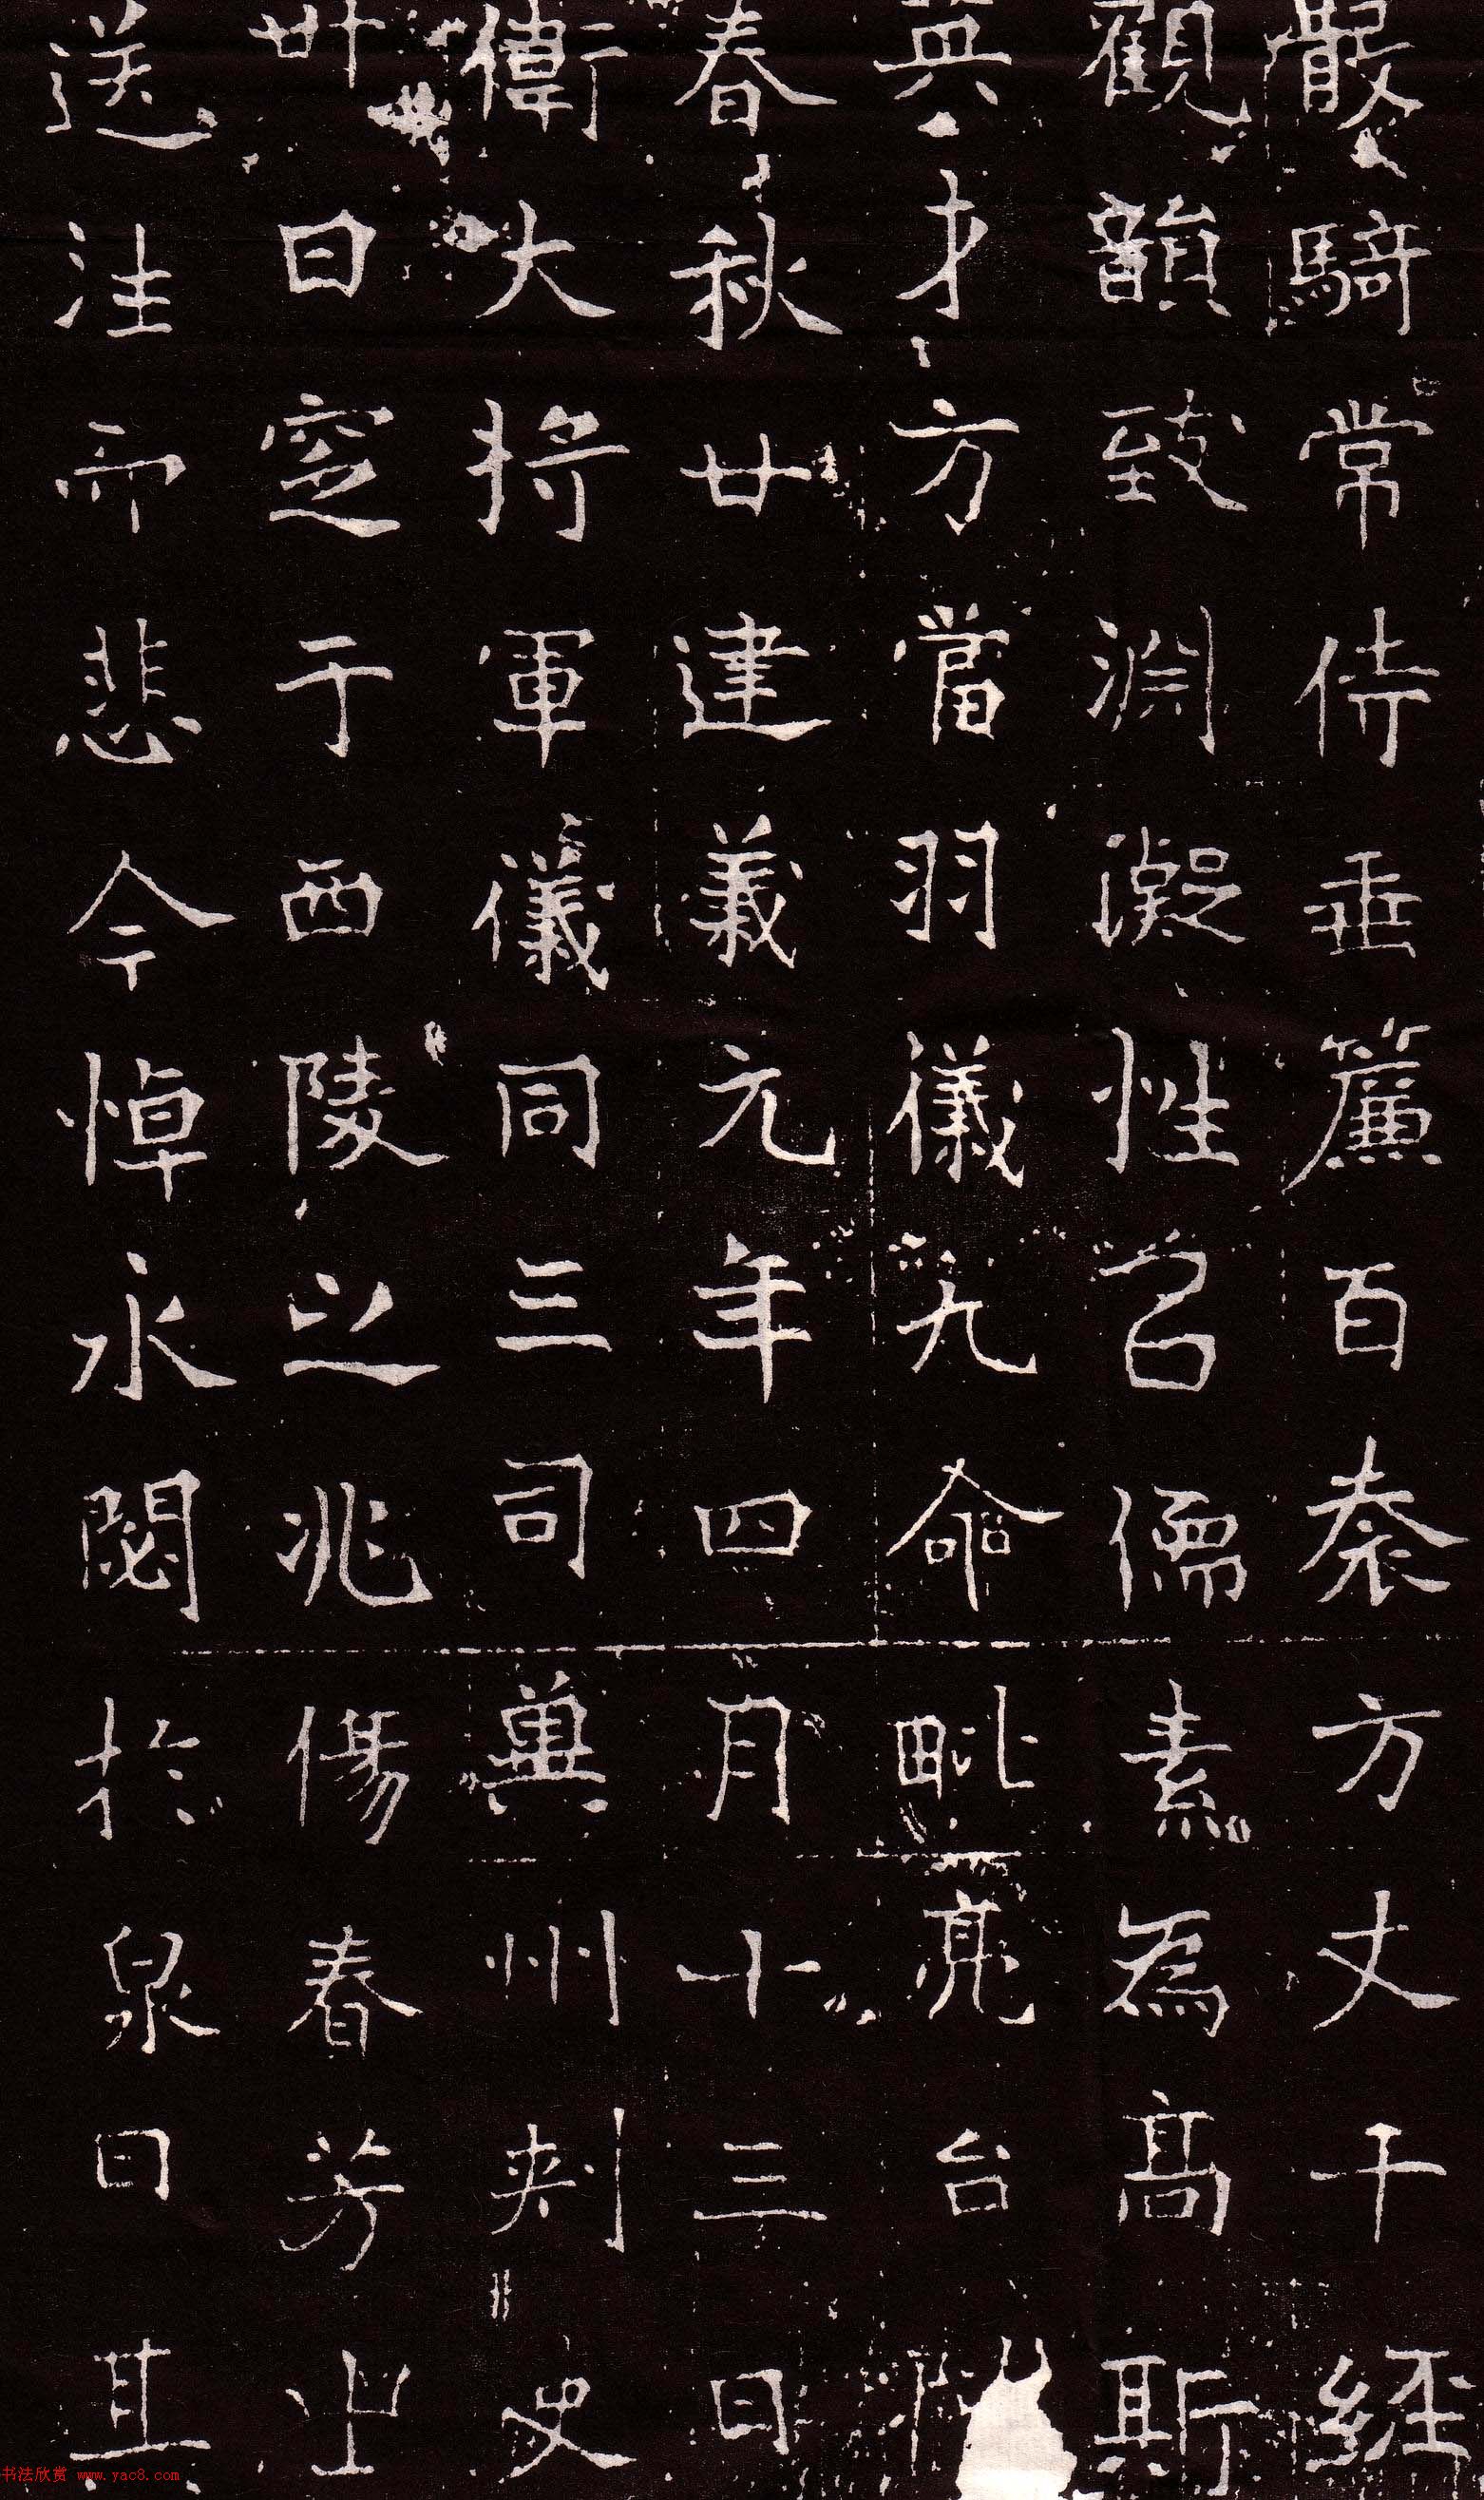 散騎常侍垂簾百袠方丈千經
觀韻致淵凝性召儒素為高斯
英才方當羽儀九命毗亮台
春秋廿建義元年四月十三日
衛大將軍儀同三司冀州刺史
卅日窆于西陵之兆傷春芳之
送注而悲今悼永閟於泉曰其
书法欣赏 www.yac8.com